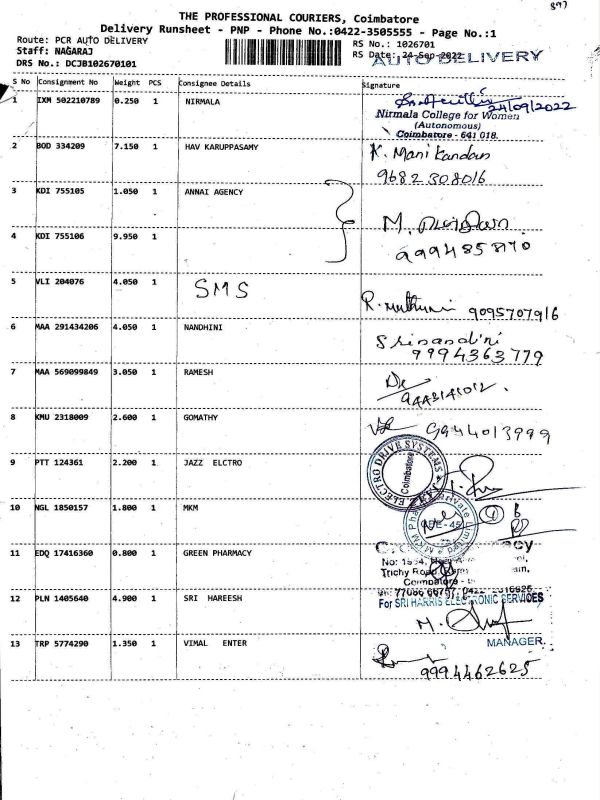 897
THE PROFESSIONAL COURIERS, Coimbatore
Delivery Runsheet - PNP - Phone No.:0422-3505555 - Page No.:1
Route: PCR AUTO DELIVERY
Staff: NAGARAJ
DRS No.: DCJB102670101
RS No.: 1026701
RS Date: 24-Sep-2022
AUTO DELIVERY
S No Consignment No Weight PCS Consignee Details Signature
1 IXM 502210789 0.250 1 NIRMALA
24/09/2022
Nirmala College for Women
(Autonomous)
Coimbatore - 641 018.
2 BOD 334209 7.150 1 HAV KARUPPASAMY
K. Manikandan
9682308016
3 KDI 755105 1.050 1 ANNAI AGENCY
4 KDI 755106 9.950 1
M.
5 VLI 204076 4.050 1 SMS
R. 9095707916
6 MAA 291434206 4.050 1 NANDHINI
Srinandini
9994363779
7 MAA 569099849 3.050 1 RAMESH
8 KMU 2318009 2.600 1 GOMATHY
9944013999
9 PTT 124361 2.200 1 JAZZ ELCTRO
ELECTRO DRIVE SYSTEMS
Coimbatore
10 NGL 1850157 1.800 1 MKM
MKM Pharma Private Limited
11 EDQ 17416360 0.800 1 GREEN PHARMACY
Trichy Road
Coimbatore
12 PLN 1405640 4.900 1 SRI HAREESH
For SRI HARRIS ELECTRONIC SERVICES
M.
MANAGER.
13 TRP 5774290 1.350 1 VIMAL ENTER
9994462625